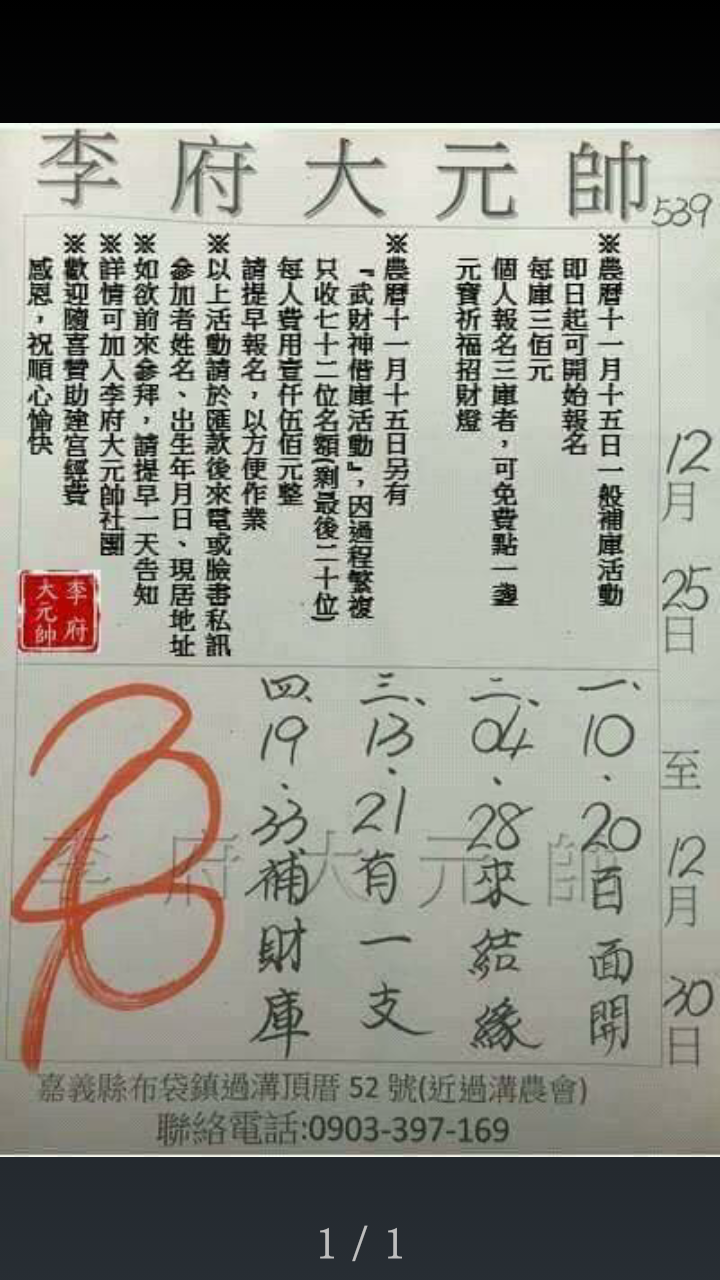 李府大元帥
539
※農曆十一月十五日一般補庫活動
即日起可開始報名
每庫三佰元
個人報名三庫者，可免費點一盞
元寶祈福招財燈
※農曆十一月十五日另有
『武財神借庫活動』，因過程繁複
只收七十二位名額(剩最後二十位)
每人費用壹仟伍佰元整
請提早報名，以方便作業
※以上活動請於匯款後來電或臉書私訊
參加者姓名、出生年月日、現居地址
※如欲前來參拜，請提早一天告知
※詳情可加入李府大元帥社團
※歡迎隨喜贊助建宮經費
感恩，祝順心愉快
李府
大元帥
12月25日至12月30日
一、10、20百面開
二、04、28來結緣
三、13、21有一支
四、19、33補財庫
李府大元帥
嘉義縣布袋鎮過溝頂厝 52 號(近過溝農會)
聯絡電話:0903-397-169
1 / 1